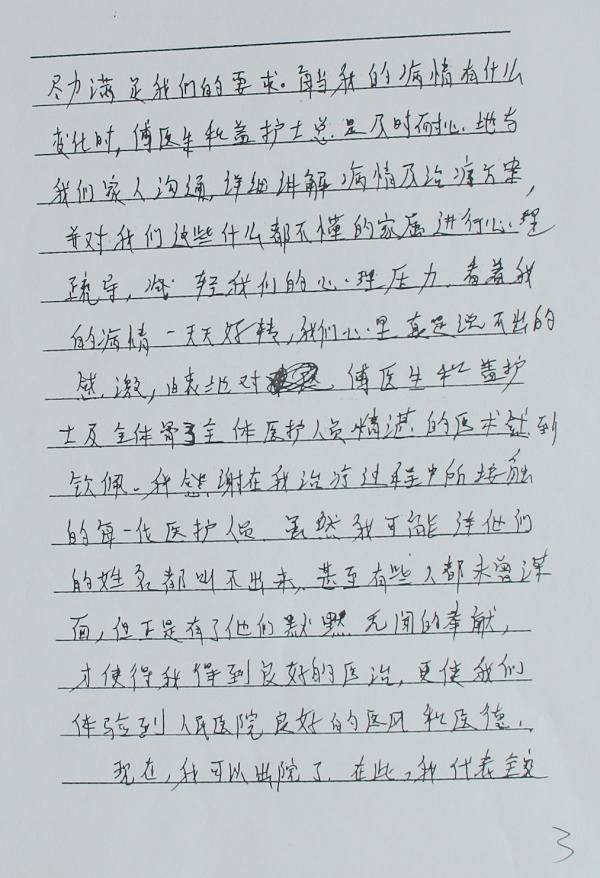 尽力满足我们的要求。每当我的病情有什么
变化时,傅医生和盖护士总是及时耐心地与
我们家人沟通,详细讲解病情及治疗方案,
并对我们这些什么都不懂的家属进行心理
疏导,减轻我们的心理压力。看着我
的病情一天天好转,我们心里真是说不出的
感激,由衷地对傅医生和盖护
士及全体骨3全体医护人员精湛的医术感到
钦佩。我感谢在我治疗过程中所接触
的每一位医护人员,虽然我可能连他们
的姓名都叫不出来,甚至有些人都未曾谋
面,但正是有了他们默默无闻的奉献,
才使得我得到良好的医治,更使我们
体验到人民医院良好的医风和医德。
现在,我可以出院了,在此,我代表全家
3